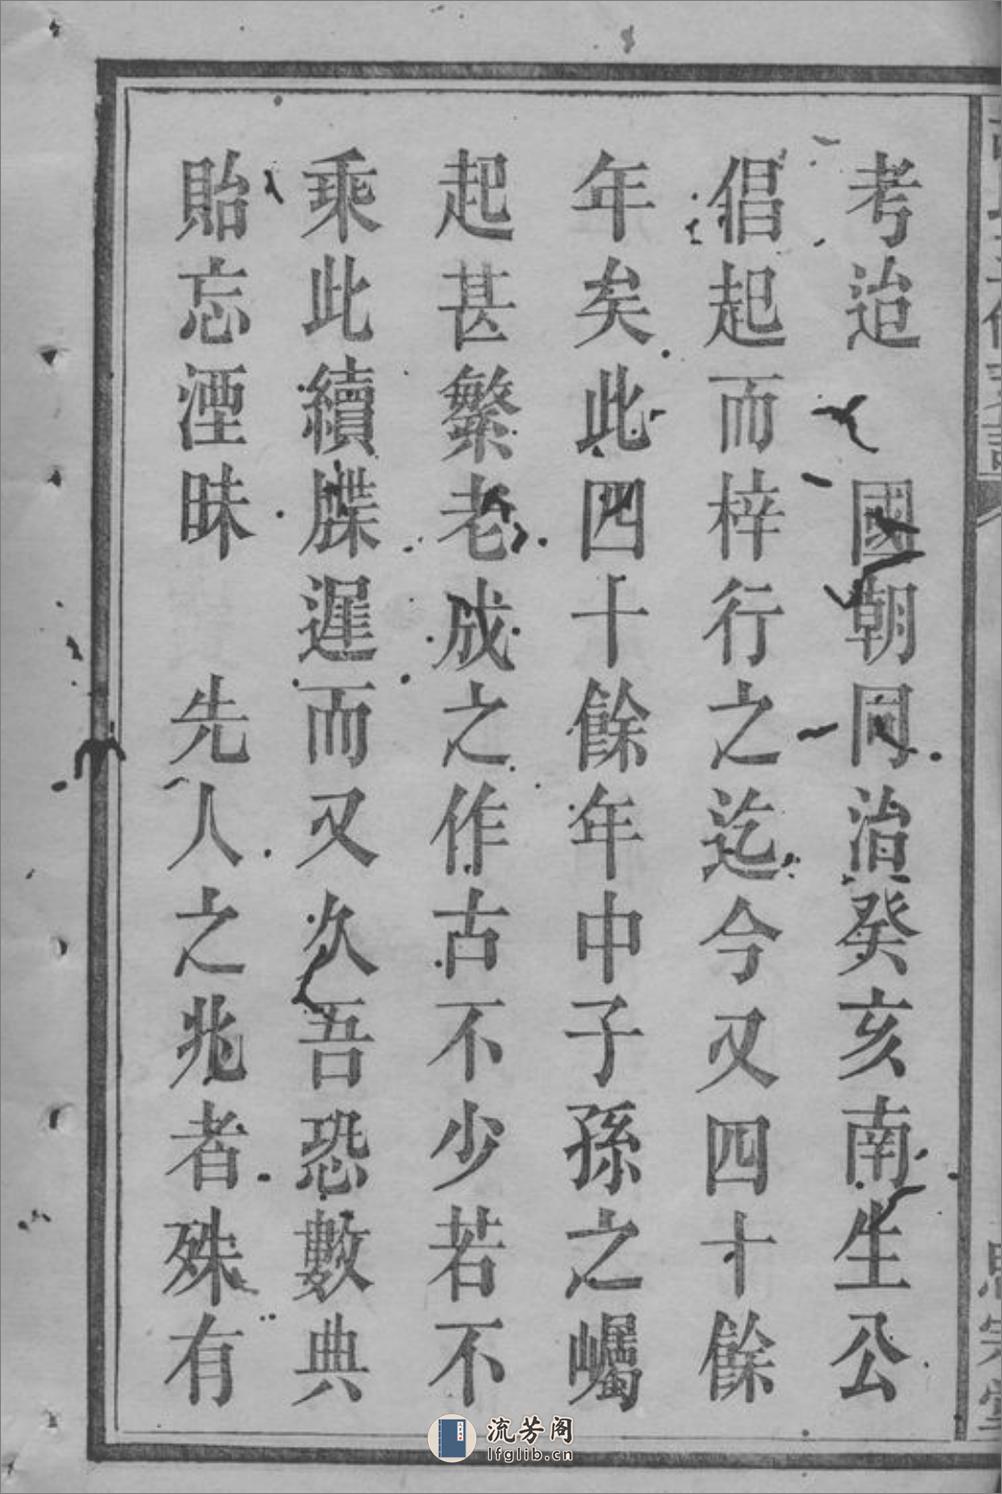 考迨 國朝同治癸亥南生公
倡起而梓行之迄今又四十餘
年矣此四十餘年中子孫之囑
起甚繁老成之作古不少若不
乘此續牒遲而又久吾恐數典
貽忘湮昧 先人之兆者殊有
流芳阁
lfglib.cn